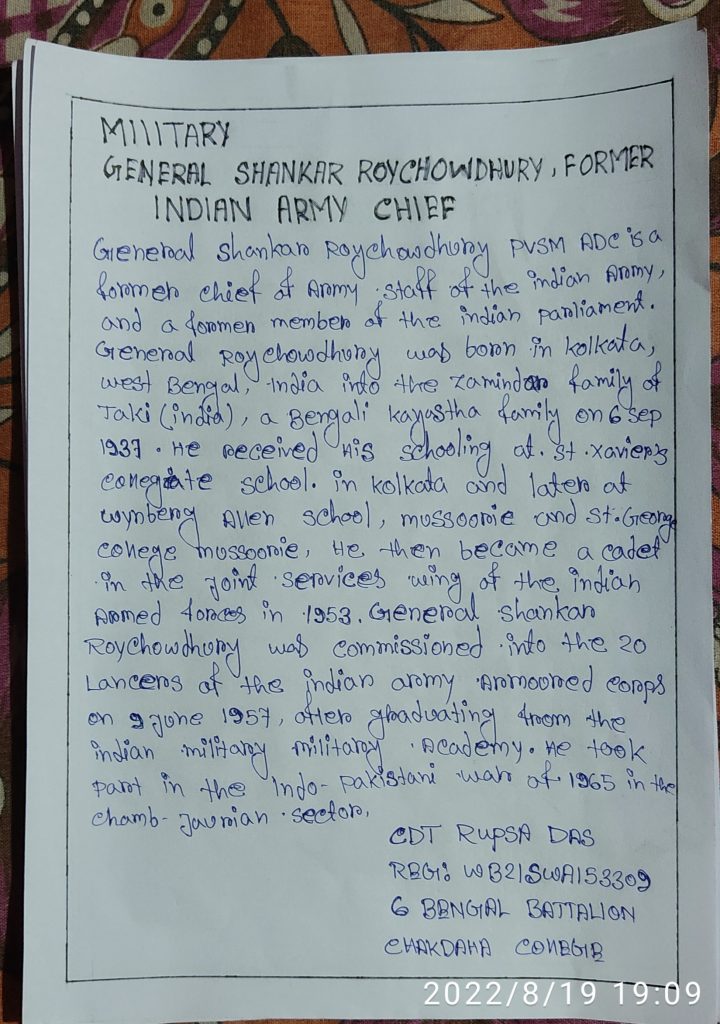 MIlITARY
GENERAL SHANKAR ROYCHOWDHURY, FORMER
INDIAN ARMY CHIEF
General Shankar Roychowdhury PVSM ADC is a
former chief of Army staff of the indian Army,
and a former member of the indian parliament.
General Roychowdhury was born in kolkata,
west Bengal, India into the zamindar family of
Taki (india), a Bengali kayastha family on 6 sep
1937. He received His schooling at. St. xavier's
collegiate school. in kolkata and later at
wynberg Allen school, mussoorie and St. George
college mussoorie, He then became a cadet
in the joint services wing of the indian
Armed forces in 1953. General shankar
Roychowdhury was commissioned into the 20
Lancers of the indian army Armoured corps
on 9 june 1957, after graduating from the
indian military military Academy. He took
part in the Indo-pakistani war of 1965 in the
chamb-Jaurian sector,
CDT RUPSA DAS
REG: WB21SWA153309
6 BENGAL BATTALION
CHAKDAHA COllEGE
2022/8/19 19:09